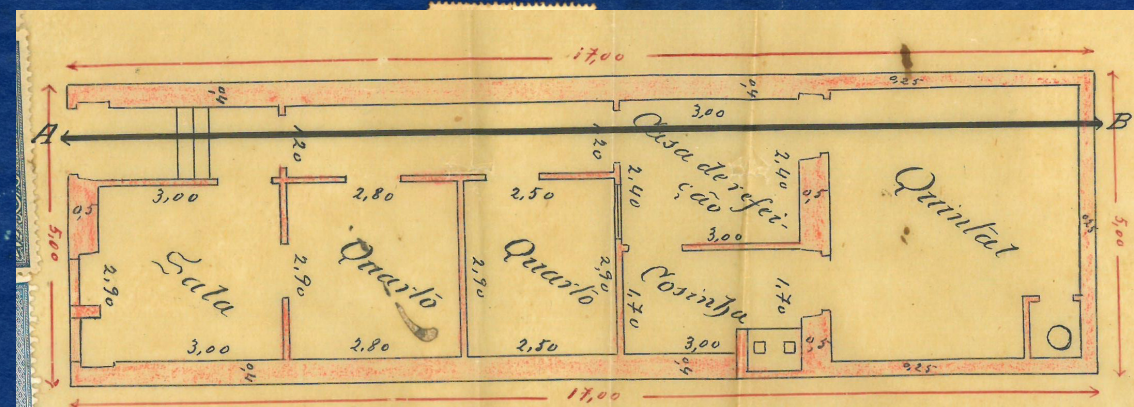 17,00
0,4
0,4
0,25
3,00
A
B
1,20
1,20
Casa de refei-
ção
2,40
2,40
0,5
Quintal
0,25
5,00
5,00
0,5
3,00
2,80
2,50
3,00
Sala
2,90
2,90
Quarto
2,90
Quarto
2,90
Cosinha
1,70
1,70
3,00
2,80
2,50
3,00
0,5
0,4
0,4
0,25
17,00